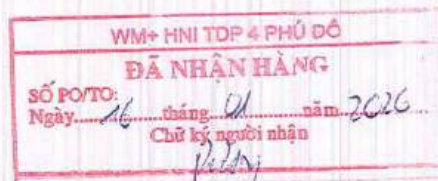 WM+ HNI TDP 4 PHÚ ĐÔ
ĐÃ NHẬN HÀNG
SỐ PO/TO:
Ngày........16........tháng....01............năm..2026
Chữ ký người nhận